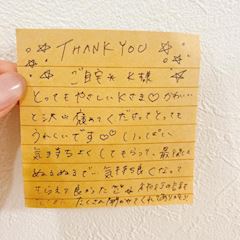 THANK YOU
ご自宅 K様
とってもやさしいKさま♡かわいい
と沢山褒めてくださってとっても
うれしいです♡♡いっぱい
気持ちよくしてもらって、最後は
ぬるぬるで 気持ち良くなって
もらえて良かった
たくさん